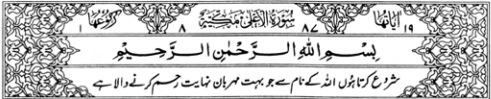 اٰیاتها ١٩ سُوْرَةُ الْاَعْلٰى مَكِّيَّةٌ ٨٧ ٨ رکوعها ١
بِسْمِ اللّٰهِ الرَّحْمٰنِ الرَّحِيْمِ
شروع کرتا ہوں اللہ کے نام سے جو بہت مہربان نہایت رحم کرنے والا ہے